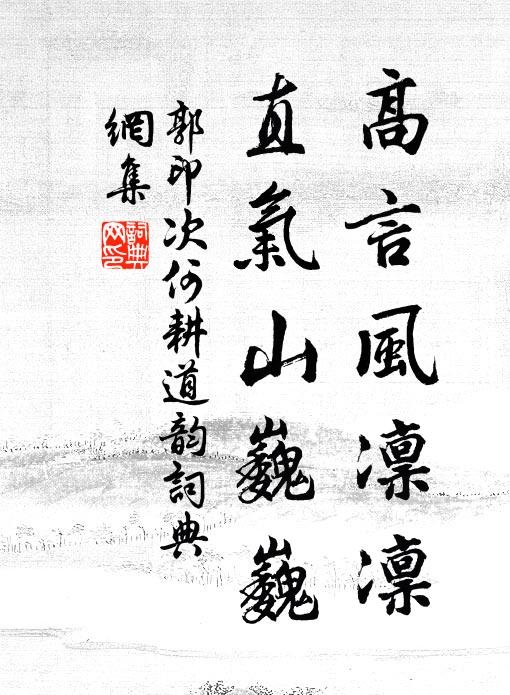 高言風凛凛
直氣山巍巍
郭印次何耕道韵詞典
網集
詞典
网印